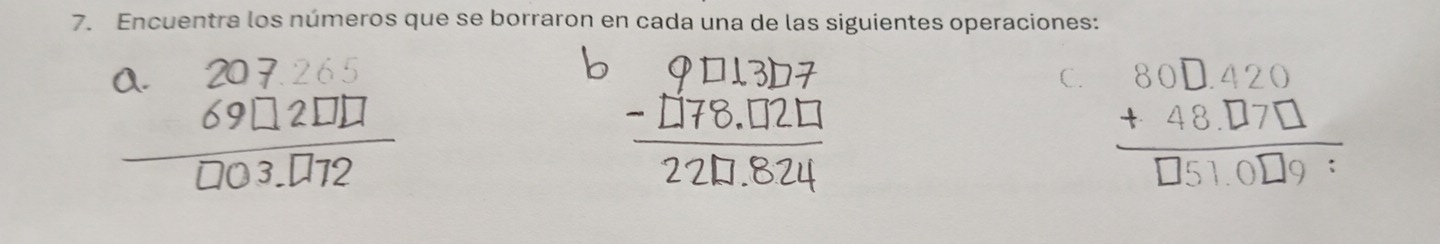 7. Encuentra los números que se borraron en cada una de las siguientes operaciones:
a. 207.265 b 9□13□7 c. 80□.420
69□2□□ - □78.□2□ + 48.□7□
□03.□72 22□.824 □51.0□9 :